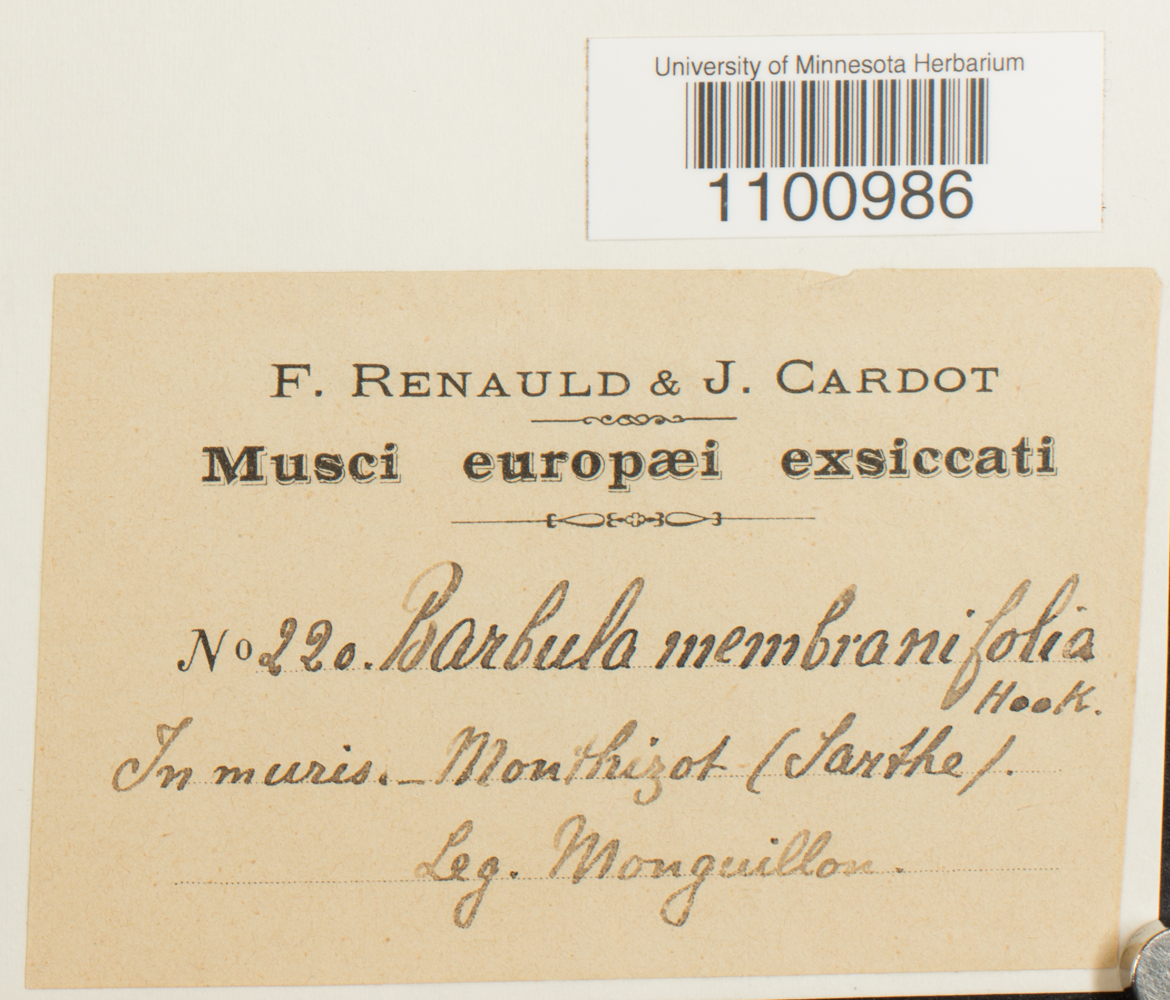 University of Minnesota Herbarium
1100986
F. RENAULD & J. CARDOT
Musci europæi exsiccati
No 220. Barbula membranifolia
Hook.
In muris. _ Monthizot (Sarthe).
Leg. Monguillon.